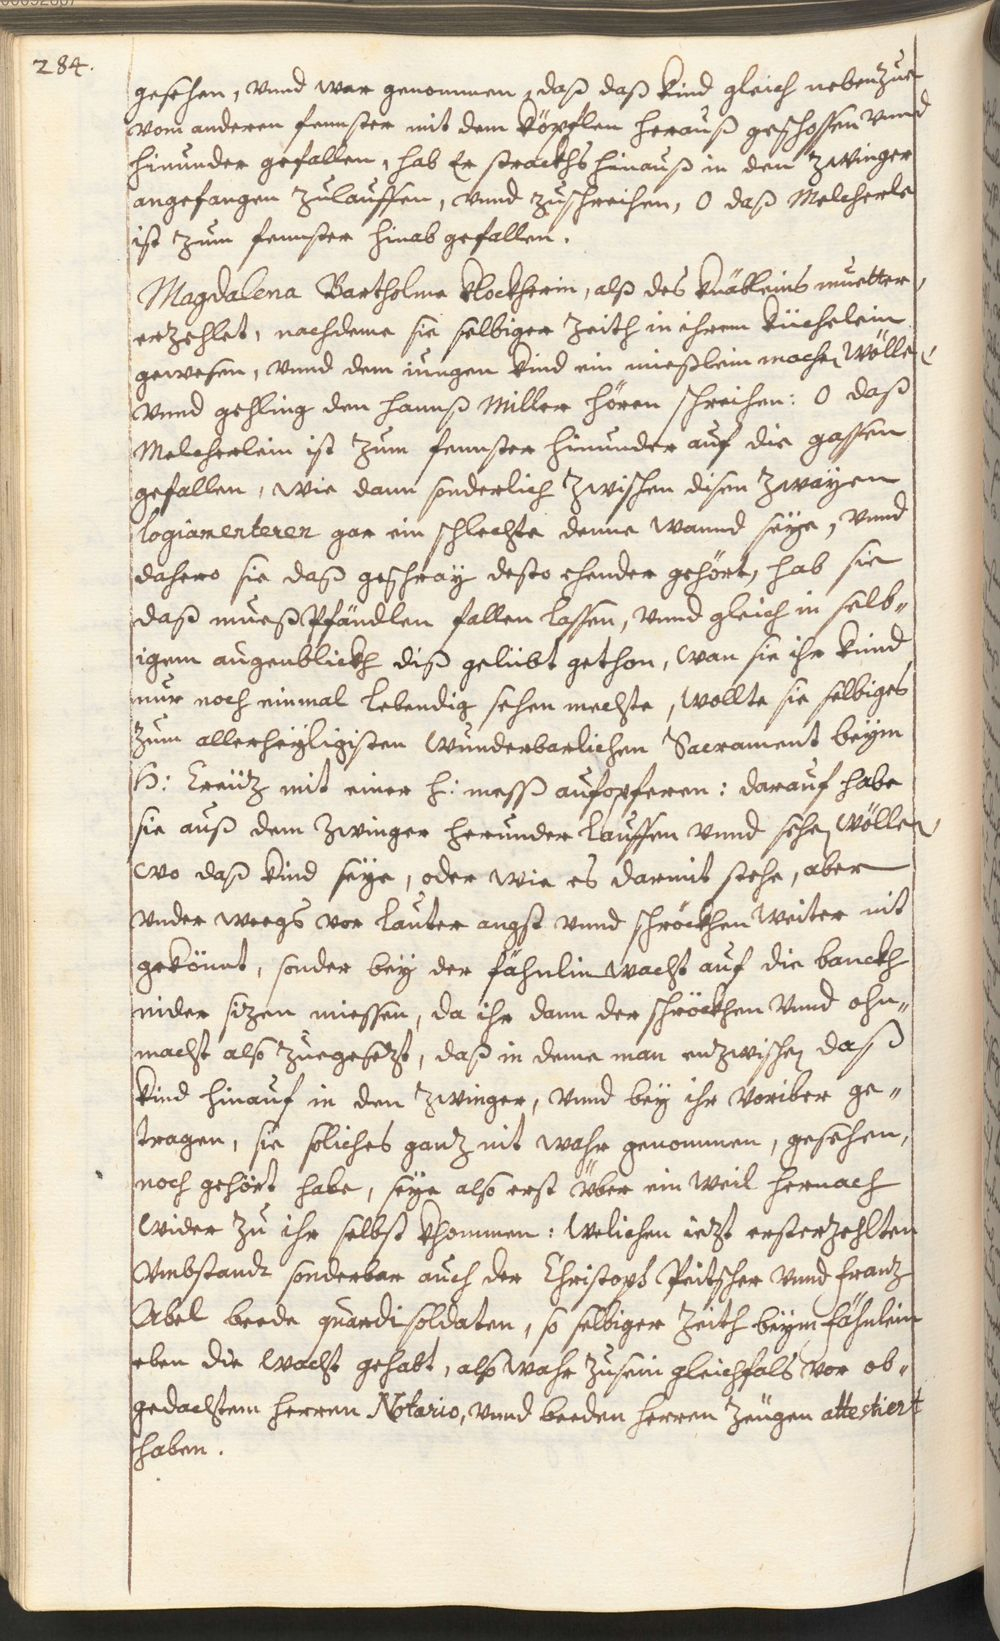 284.
gesehen, vnnd war genommen, daß daß kind gleich nebenzue
vom anderen fennster mit dem köpflen herauß geschossen vnnd
hinunder gefallen, hab Er strackhs hinauß in den Zwinger
angefangen zulauffen, vnnd zuschreihen, O daß Melcherle
ist zum fennster hinab gefallen.
Magdalena Bartholme Klockherin, alß des knäbleins muetter,
erzehlet, nachdeme sie selbiger Zeith in ihrem küchelein
gewesen, vnnd dem iungen kind ein mießlein machen wölle,
vnnd gehling den hannß Miller hören schreihen: O daß
Melcherlein ist zum fennster hinunder auf die gassen
gefallen, wie dann sonderlich zwischen disen zwäyen
logiamenteren gar ein schlechte denne wannd seye, vnnd
dahero sie daß geschray desto ehender gehört, hab sie
daß mueß Pfändlen fallen lassen, vnnd gleich in selb„
igem augenblickh diß gelübt gethon, wan sie ihr kind
nur noch einmal lebendig sehen mechte, wollte sie selbiges
zum allerheyligisten wunderbarlichen Sacrament beym
H: Creütz mit einer h: mess aufopferen: darauf habe
sie auß dem Zwinger herunder lauffen vnnd sehen wöllen,
wo daß kind seye, oder wie es darmit stehe, aber
vnder weegs vor lauter angst vnnd schröckhen weiter nit
gekönnt, sonder bey der fähnlin wacht auf die banckh
nider sizen miessen, da ihr dann der schröckhen vnnd ohn„
macht also zuegesezt, daß in deme man endzwischen daß
kind hinauf in den Zwinger, vnnd bey ihr voriber ge„
tragen, sie soliches ganz nit wahr genommen, gesehen,
noch gehört habe, seye also erst über ein weil hernach
wider zu ihr selbst khommen: welichen iezt ersterzehlten
vmbstandt sonderbar auch der Christoph Peitscher vnnd franz
Abel beede quardisoldaten, so selbiger Zeith beym fähnlein
eben die wacht gehabt, also wahr zusein gleichfals vor ob„
gedachtem herren Notario, vnnd beeden herren Zeügen attestiert
haben.